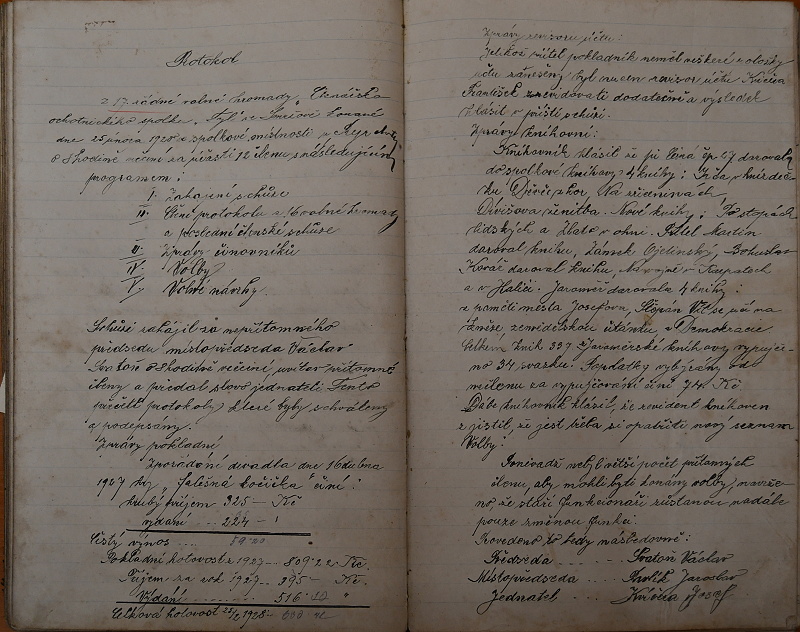 Protokol
z 17. řádné valné hromady „Čtenářsko
ochotnického spolku „Tyl" ve
dne 25 února 1928 v spolkové místnosti u
o 8 hodině večerní za účasti 12 členů s následujícím
programem:
I. Zahájení schůze
II. Čtení protokolu z 16 valné hromady
a poslední členské schůze
III. Zprávy činovníků
IV. Volby
V. Volné návrhy.
Schůzi zahájil za nepřítomného
předsedu místopředseda Václav
Svatoň o 8 hodině večerní, uvítav přítomné
členy a předal slovo jednateli. Tento
přečetl protokoly, které byly schváleny
a podepsány.
Zprávy pokladní
Zpořádání divadla dne 16 dubna
1927 hry, „Falešná kočička" činí:
hrubý příjem 325 – Kč
vydání .... 224 –
Čistý výnos ....
Pokladní hotovost z 1927 – 809.22 Kč.
Příjem za rok 1927 – 395 – Kč.
Vydání ........ 516.
Celková hotovost 25/2 1928 –
Zprávy revisorů účtů:
Jelikož přítel pokladník neměl veškeré položky
účtů zaneseny, byl revisor účtů Kvíčia
František zrevidovati dodatečně a výsledek
hlásiti v příští schůzi.
Zprávy knihovní:
Knihovník hlásil že darovala
do spolkové knihovny 4 knihy:
Děvčí hor, Na
Divišova ženitba. Nové knihy: Po stopách
lidských a Zlato v ohni. Přítel Martin
daroval knihu, Zámek Ojetinský, Bohuslav
Kovář daroval knihu, Na vojně v Karpatech
a v Haliči. Jaroměř darovala 4 knihy:
z pamětí města Josefova, Štěpán
kněze zemědělskou čítanku a Demokracie
Celkem knih 337. z Jaroměřské knihovny vypůjče-
no 34 svazků. Poplatky vybírány od
členů za vypůjčování činí 74 Kč.
Dále knihovník hlásil, že revident knihoven
zjistil, že jest třeba si opatřiti nový seznam
Volby:
Poněvadž nebyl větší počet přítomných
členů, aby mohli býti konány volby, navrže-
no, že staří funkcionáři zůstanou nadále
pouze změnou funkcí.
Provedeno to tedy následovně:
Předseda ..... Svatoň Václav
Místopředseda ... Jaroslav
Jednatel .... Kvíčia Josef